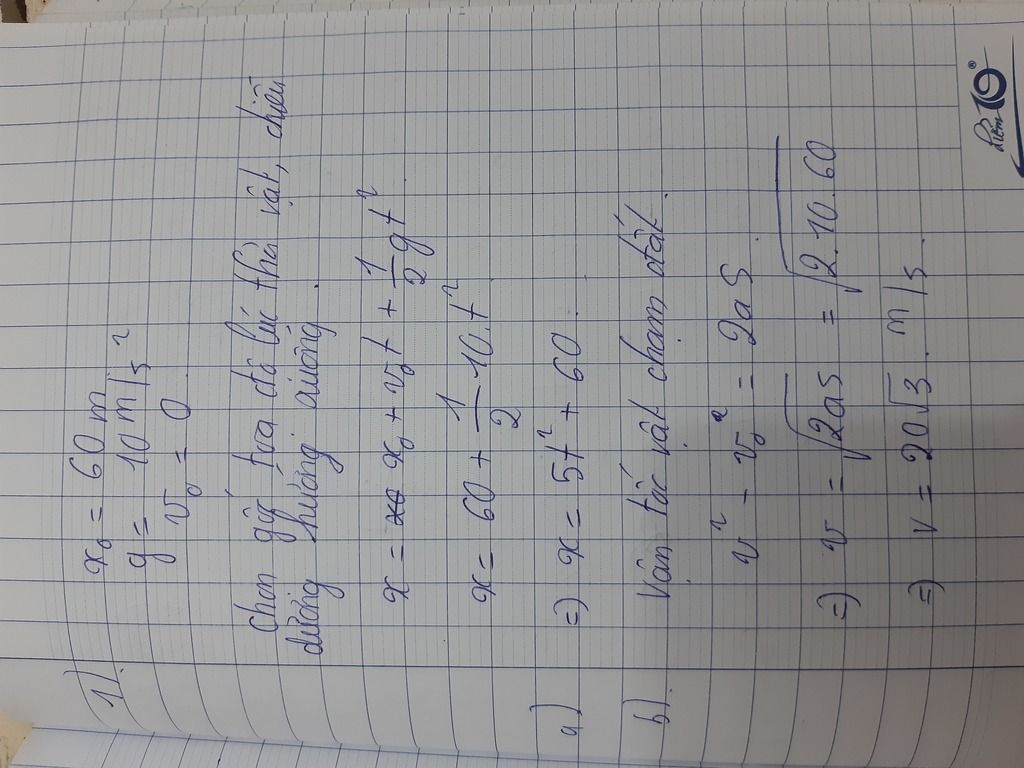 1).
x₀ = 60 m
g = 10 m/s²
v₀ = 0
Chọn gốc tọa độ lúc thả vật, chiều
dương hướng xuống.
x = x₀ + v₀t + 1/2 gt²
x = 60 + 1/2 10.t²
a) => x = 5t² + 60.
b). Vận tốc vật chạm đất.
v² - v₀² = 2aS.
=) v = √2aS = √2.10.60
=) v = 20√3. m/s.
điểm 10®